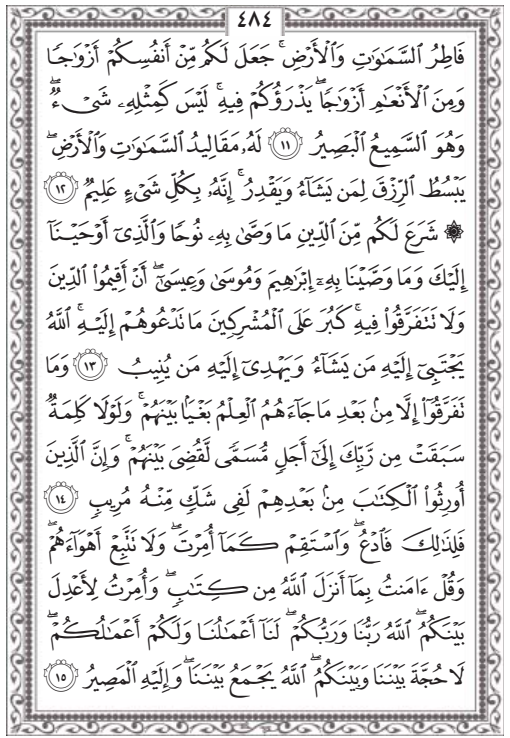 ٤٨٤
فَاطِرُ ٱلسَّمَٰوَٰتِ وَٱلْأَرْضِ ۚ جَعَلَ لَكُم مِّنْ أَنفُسِكُمْ أَزْوَٰجًا
وَمِنَ ٱلْأَنْعَٰمِ أَزْوَٰجًا ۖ يَذْرَؤُكُمْ فِيهِ ۚ لَيْسَ كَمِثْلِهِۦ شَىْءٌ ۖ
وَهُوَ ٱلسَّمِيعُ ٱلْبَصِيرُ ١١ لَهُۥ مَقَالِيدُ ٱلسَّمَٰوَٰتِ وَٱلْأَرْضِ ۖ
يَبْسُطُ ٱلرِّزْقَ لِمَن يَشَآءُ وَيَقْدِرُ ۚ إِنَّهُۥ بِكُلِّ شَىْءٍ عَلِيمٌ ١٢
۞ شَرَعَ لَكُم مِّنَ ٱلدِّينِ مَا وَصَّىٰ بِهِۦ نُوحًا وَٱلَّذِىٓ أَوْحَيْنَآ
إِلَيْكَ وَمَا وَصَّيْنَا بِهِۦٓ إِبْرَٰهِيمَ وَمُوسَىٰ وَعِيسَىٰٓ ۖ أَنْ أَقِيمُوا۟ ٱلدِّينَ
وَلَا تَتَفَرَّقُوا۟ فِيهِ ۚ كَبُرَ عَلَى ٱلْمُشْرِكِينَ مَا تَدْعُوهُمْ إِلَيْهِ ۚ ٱللَّهُ
يَجْتَبِىٓ إِلَيْهِ مَن يَشَآءُ وَيَهْدِىٓ إِلَيْهِ مَن يُنِيبُ ١٣ وَمَا
تَفَرَّقُوٓا۟ إِلَّا مِنۢ بَعْدِ مَا جَآءَهُمُ ٱلْعِلْمُ بَغْيًۢا بَيْنَهُمْ ۚ وَلَوْلَا كَلِمَةٌ
سَبَقَتْ مِن رَّبِّكَ إِلَىٰٓ أَجَلٍ مُّسَمًّى لَّقُضِىَ بَيْنَهُمْ ۚ وَإِنَّ ٱلَّذِينَ
أُورِثُوا۟ ٱلْكِتَٰبَ مِنۢ بَعْدِهِمْ لَفِى شَكٍّ مِّنْهُ مُرِيبٍ ١٤
فَلِذَٰلِكَ فَٱدْعُ ۖ وَٱسْتَقِمْ كَمَآ أُمِرْتَ ۖ وَلَا تَتَّبِعْ أَهْوَآءَهُمْ ۖ
وَقُلْ ءَامَنتُ بِمَآ أَنزَلَ ٱللَّهُ مِن كِتَٰبٍ ۖ وَأُمِرْتُ لِأَعْدِلَ
بَيْنَكُمُ ۖ ٱللَّهُ رَبُّنَا وَرَبُّكُمْ ۖ لَنَآ أَعْمَٰلُنَا وَلَكُمْ أَعْمَٰلُكُمْ ۖ
لَا حُجَّةَ بَيْنَنَا وَبَيْنَكُمُ ۖ ٱللَّهُ يَجْمَعُ بَيْنَنَا ۖ وَإِلَيْهِ ٱلْمَصِيرُ ١٥